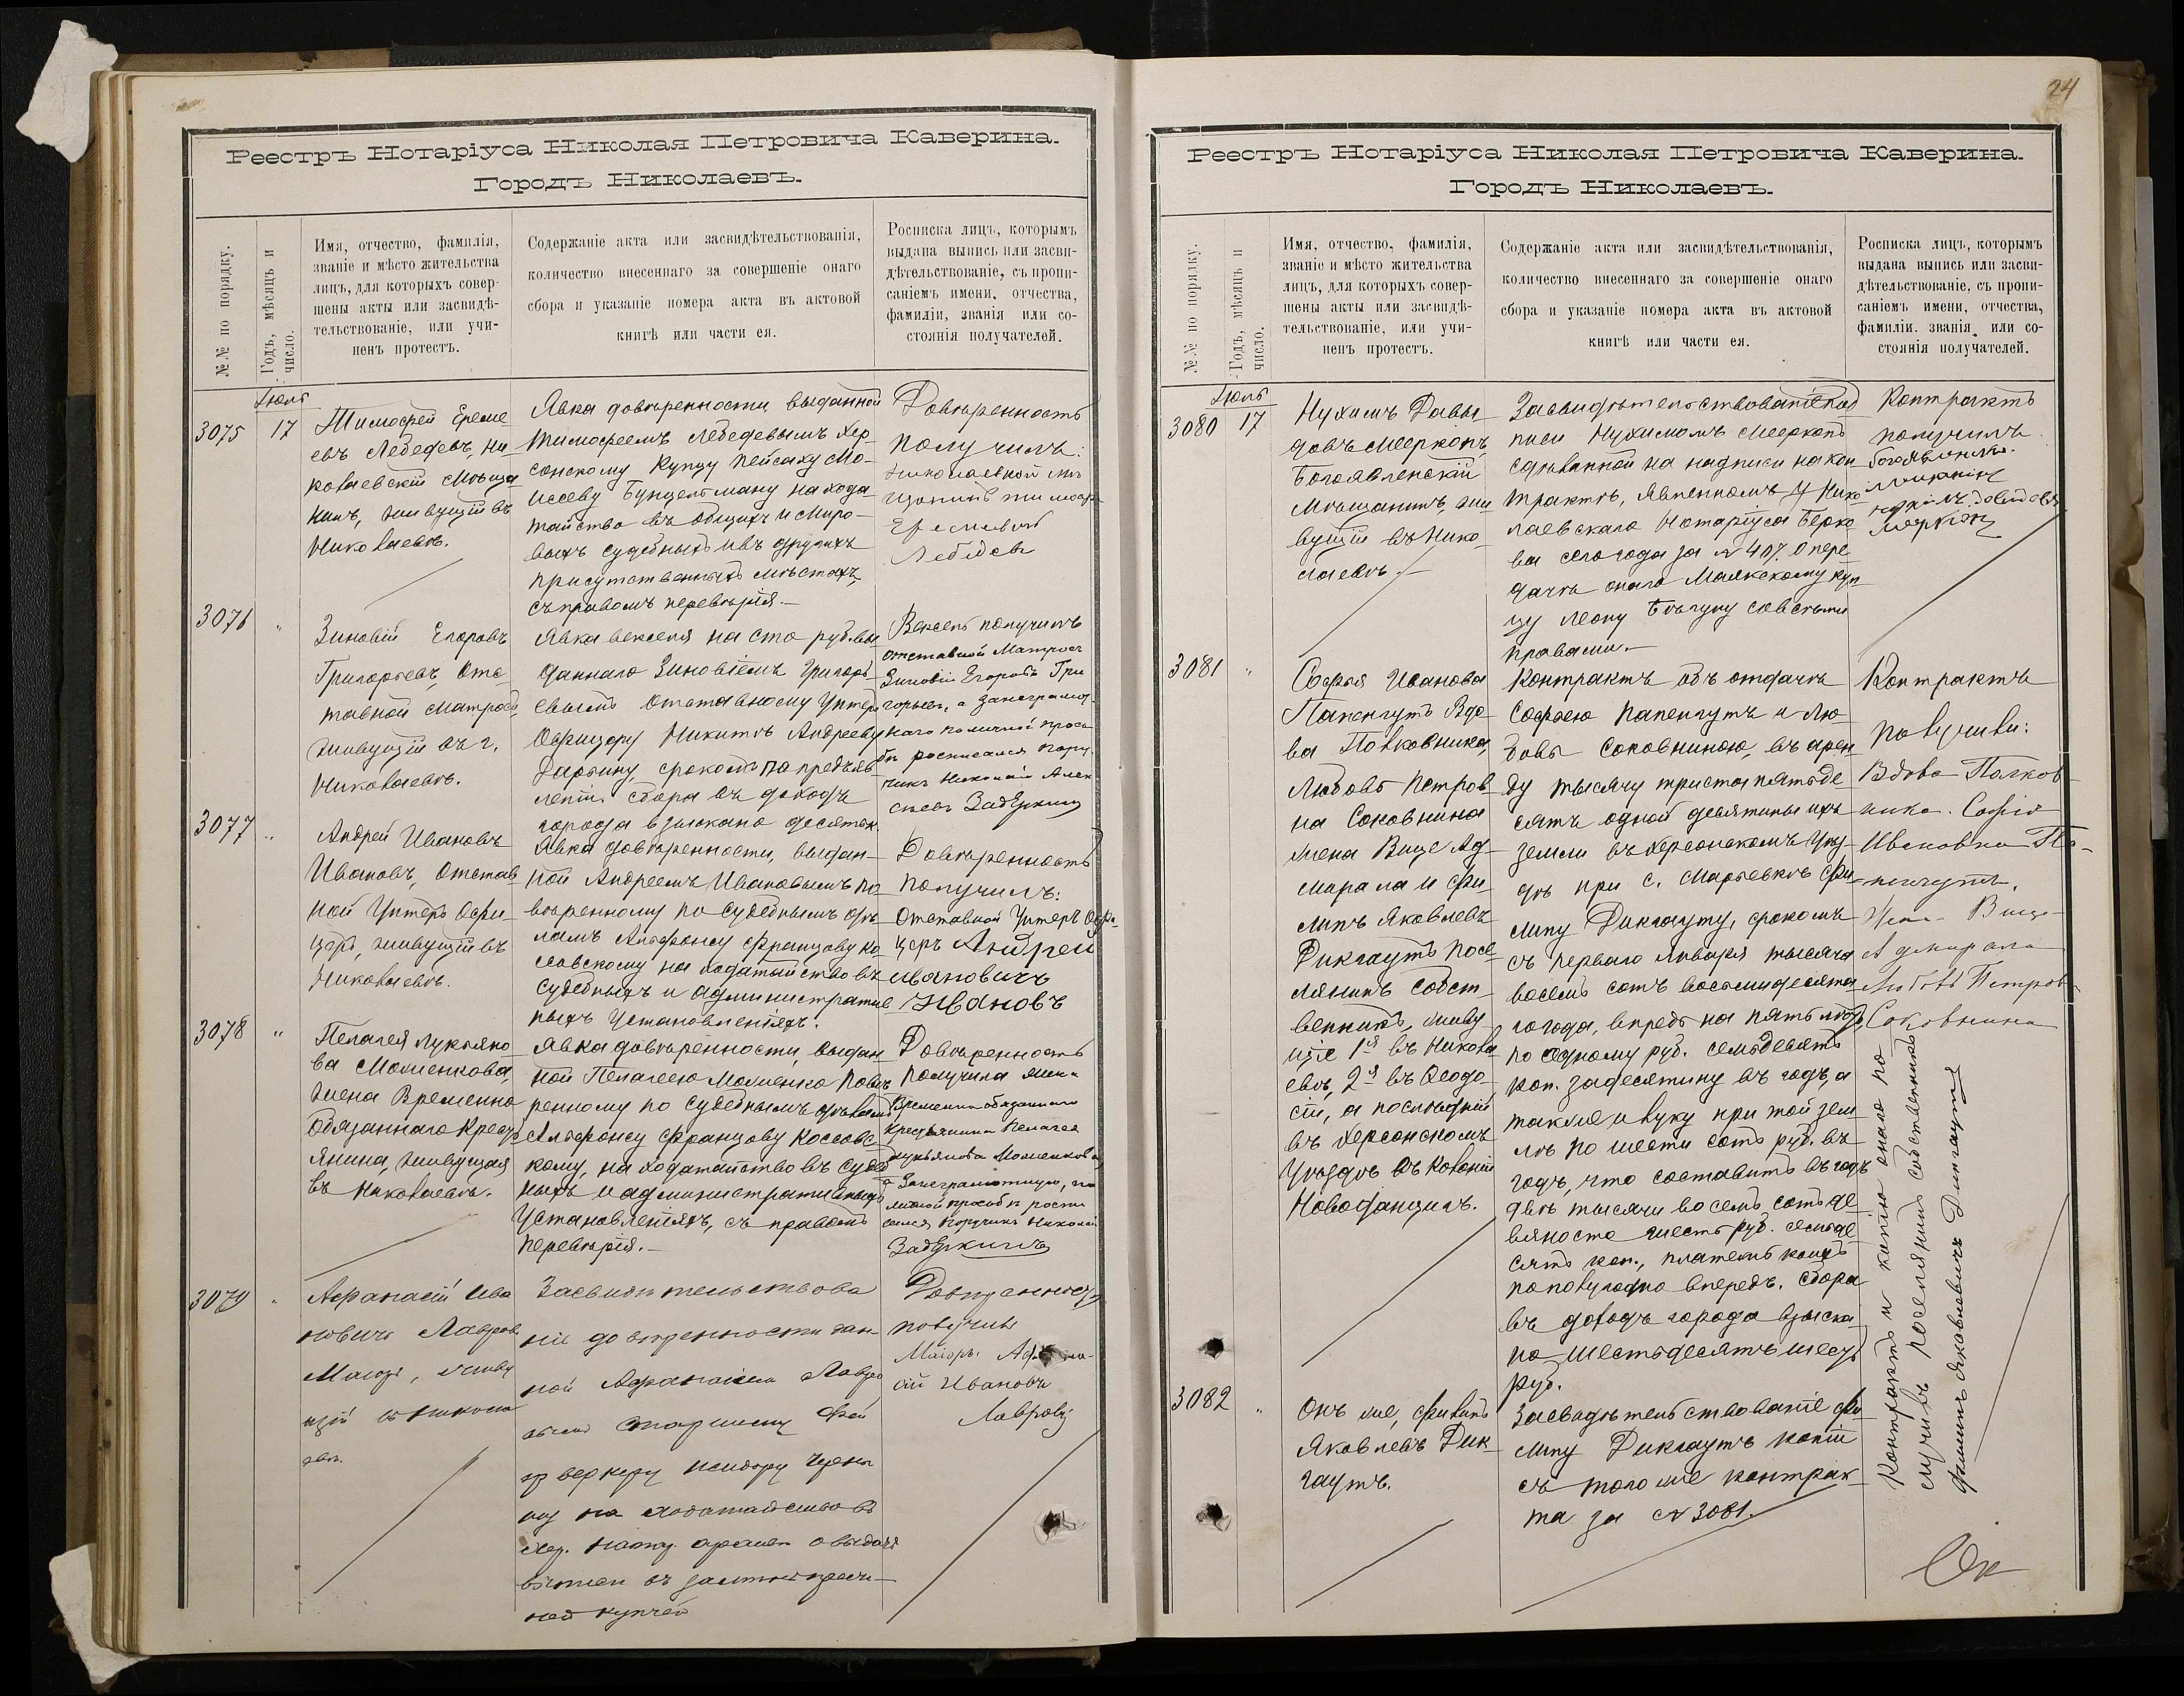 Реестръ Нотаріуса Николая Петровича Каверина.
Городъ Николаевъ.
№№ по порядку.
Годъ, мѣсяцъ и
число.
Имя, отчество, фамилія,
званіе и мѣсто жительства
лицъ, для которыхъ совер-
шены акты или засвидѣ-
тельствованіе, или учи-
ненъ протестъ.
Содержаніе акта или засвидѣтельствованія,
количество внесеннаго за совершеніе онаго
сбора и указаніе номера акта въ актовой
книгѣ или части ея.
Росписка лицъ, которымъ
выдана выпись или засви-
дѣтельствованіе, съ пропи-
саніемъ имени, отчества,
фамиліи, званія или со-
стоянія получателей.
Іюль
3075
17
Тимофей Ереме
евъ Лебедевъ, Ни
колаевскій Мѣща
нинъ, живущій въ
Николаевѣ.
Явка довѣренности выданной
Тимофеемъ Лебедевымъ Хер-
сонскому Купцу Пейсаху Мо-
исееву Бунцельману на хода
тайство въ общихъ и Миро-
выхъ судебныхъ и въ другихъ
присутственныхъ мѣстахъ,
съ правомъ перевѣрія.-
Довѣренность
получилъ:
Ереміевъ
Лебедевъ
3076
"
Зиновій Егоровъ
Григорьевъ, Отс-
тавной Матросъ,
живущій въ г.
Николаевѣ.
Явка векселя на сто руб. вы
даннаго Зиновіемъ Григорь-
евымъ Отставному Унтеръ
Офицеру Никитѣ Андрееву
срокомъ по предъяв
леніи. Сбора въ доходъ
города взыскано десять к.
Вексель получилъ
отставной Матросъ
Зиновій Егоровъ Гри
горьевъ, а за неграмот
наго по личной прось
бѣ росписался Пору-
чикъ Николай Алек
сѣевъ Задёркинъ
3077
"
Андрей Ивановъ
Ивановъ, Отстав
ной Унтеръ Офи-
церъ, живущій въ
Николаевѣ.
Явка довѣренности, выдан-
ной Андреемъ Ивановымъ по
вѣренному по судебнымъ дѣ
ламъ Альфонсу Францову Ко
совскому на ходатайство въ
судебныхъ и административ
ныхъ установленіяхъ.
Довѣренность
получилъ:
Отставной Унтеръ Офи-
церъ Андрей
Ивановичъ
Ивановъ
3078
"
Пелагея Лукьяно
ва Моменкова,
жена Временно
Обязаннаго Кресть
янина, живущая
въ Николаевѣ.
Явка довѣренности выдан
ной Пелагеею Моменко повѣ
ренному по судебнымъ дѣламъ
Альфонсу Францову Коссовс-
кому, на ходатайство въ судеб
ныхъ и административныхъ
Установленіяхъ, съ правомъ
перевѣрія.-
Довѣренность
Получила жена
Временно обязаннаго
Крестьянина Пелагея
Лукьянова Моменкова
а за неграмотную, по
личной просьбѣ роспи
сался Поручикъ Николай
Задёркинъ
3079
"
Афанасій Ива
новичъ Лавровъ
Маіоръ, живу
щій въ Никола
евѣ.
Засвидѣтельствова
ніе довѣренности дан-
ной Афанасіемъ Лавро
вымъ старшему Фей
ерверкеру
на ходатайство въ
Довѣренность
получилъ
Маіоръ Афана-
сій Ивановъ
Лавровъ
24
Реестръ Нотаріуса Николая Петровича Каверина.
Городъ Николаевъ.
№№ по порядку.
Годъ, мѣсяцъ и
число.
Имя, отчество, фамилія,
званіе и мѣсто жительства
лицъ, для которыхъ совер-
шены акты или засвидѣ-
тельствованіе, или учи-
ненъ протестъ.
Содержаніе акта или засвидѣтельствованія,
количество внесеннаго за совершеніе онаго
сбора и указаніе номера акта въ актовой
книгѣ или части ея.
Росписка лицъ, которымъ
выдана выпись или засви-
дѣтельствованіе, съ пропи-
саніемъ имени, отчества,
фамиліи, званія или со-
стоянія получателей.
Іюль
3080
17
Нухимъ Давы
довъ Мееркопъ,
Богоявленскій
Мѣщанинъ, жи
вущій въ Нико-
лаевѣ.-
Засвидѣтельствованіе под
писи Нухимомъ Мееркопъ
сдѣланной на надписи на кон-
трактѣ, явленномъ у Нико-
лаевскаго Нотаріуса Берко
ва сего года за № 407 о пере
дачѣ онаго Маякскому куп
цу Леону со всѣми
правами.-
Контрактъ
получилъ
3081
"
Софья Иванова
Папенгутъ Вдо-
ва Полковника,
Любовь Петров-
на Соковнина
жена Вице Ад-
мирала и Фи-
липъ Яковлевъ
Дикгаутъ Посе-
лянинъ собст-
венникъ, живу
щіе 1я въ Никола
евѣ, 2я въ Ѳеодо-
сіи, а послѣдній
въ Херсонскомъ
Уѣздѣ въ Колоніи
Новоданцигъ.
Контрактъ объ отдачѣ
Софьею Папенгутъ и Лю-
бовью Соковниною, въ арен
ду тысячу триста пятьде
сятъ одной десятины ихъ
земли въ Херсонскомъ Уѣз-
дѣ при с. Марьевкѣ Фи-
липу Дикгауту, срокомъ
съ перваго Января тысяча
восемь сотъ восемьдесятаго
года, впредь на пять лѣтъ
по одному руб. семьдесятъ
коп. за десятину въ годъ, а
также и луку при той зем
лѣ по шести сотъ руб. въ
годъ, что составитъ въ годъ
двѣ тысячи восемь сотъ де
вяносто шесть руб. семьде
сятъ коп., платежъ коихъ
по полугодно впередъ. Сбора
въ доходъ города взыска
но шестьдесятъ шесть
руб.
Контрактъ
получили:
Вдова Полков-
ника Софія
Ивановна Па-
пенгутъ.
Жена Вице-
Адмирала
Любовь Петровна
Соковнина
Контрактъ и копію онаго по
лучилъ поселянинъ собственникъ
Филиппъ Яковлевичъ Дикгаутъ
3082
"
Онъ же, Филипъ
Яковлевъ Дик-
гаутъ.
Засвидѣтельствованіе Фи
липу Дикгаутъ копіи
съ того же контрак-
та за № 3081.